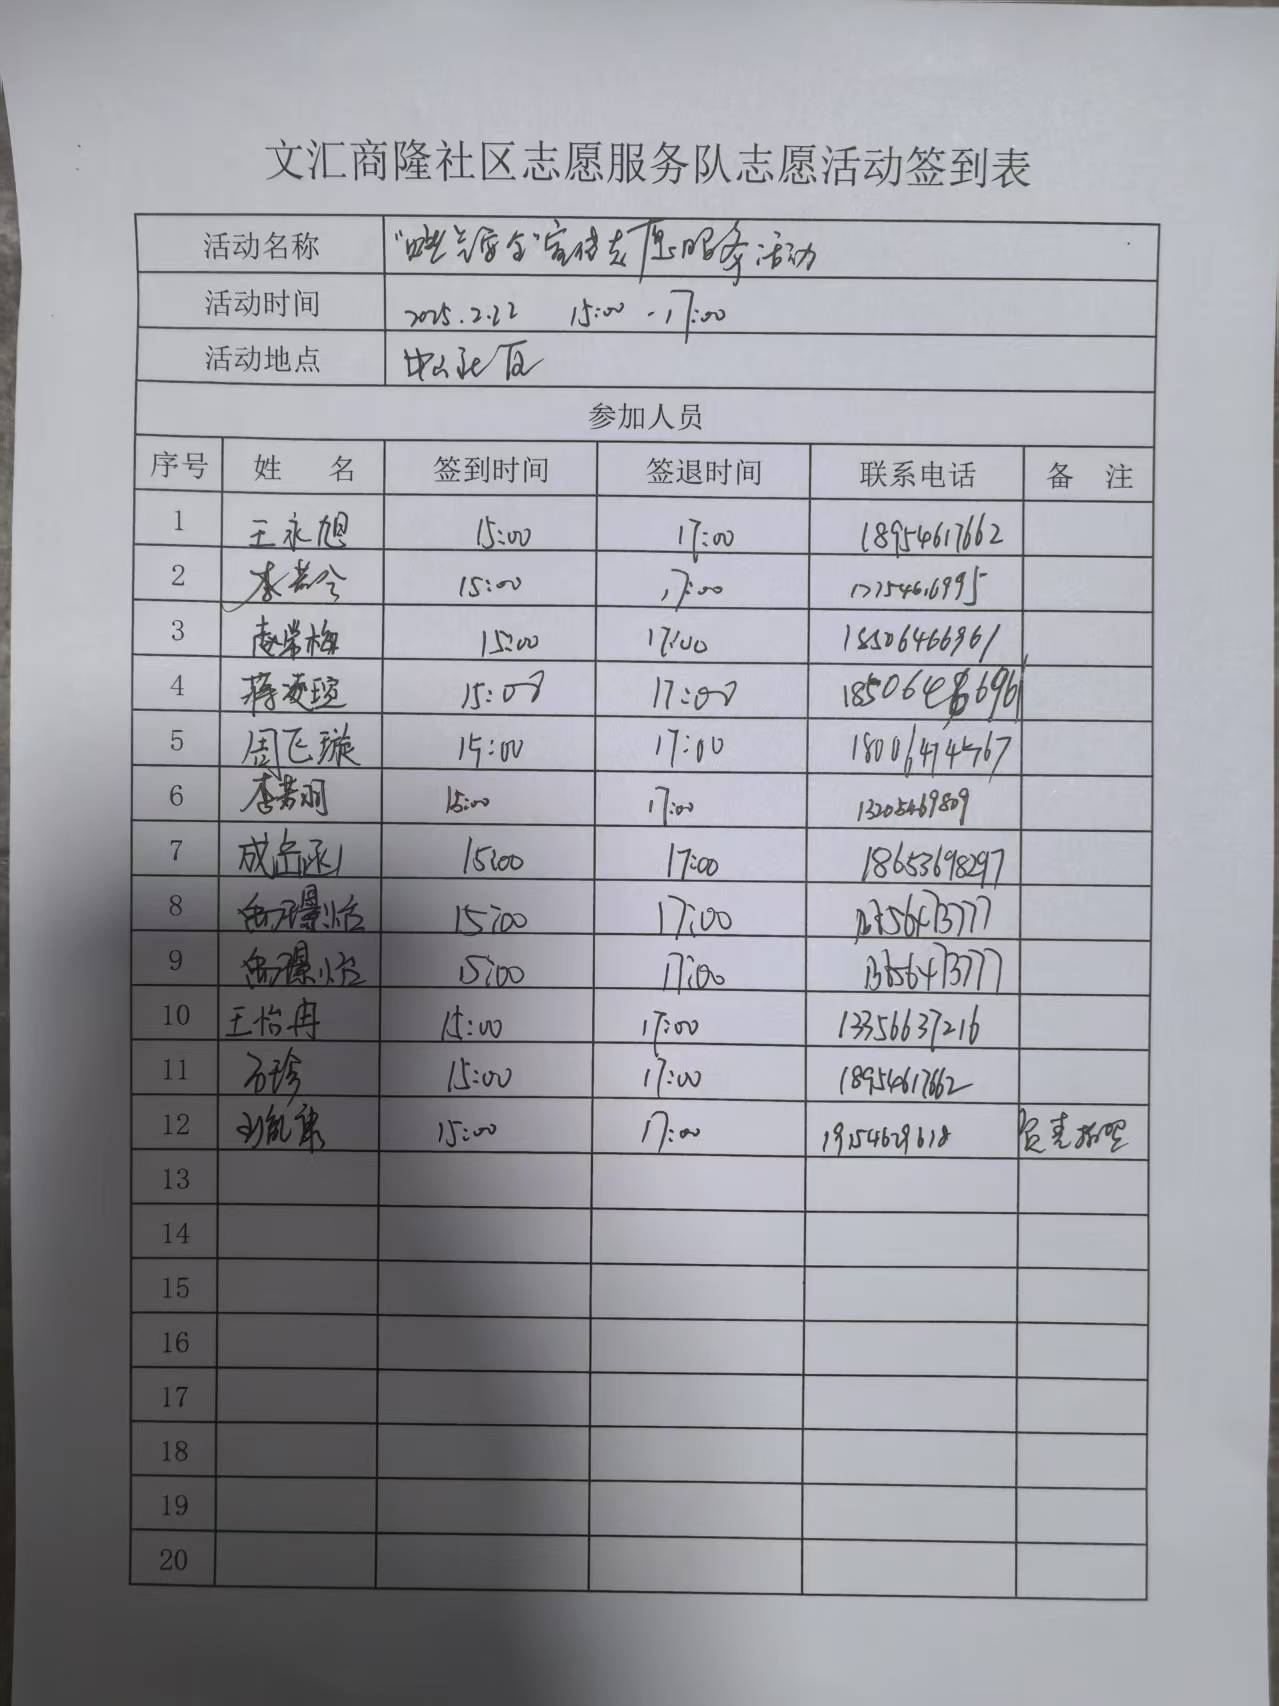 文汇商隆社区志愿服务队志愿活动签到表
活动名称 安全"宣传志愿服务活动
活动时间 2025.2.22 15:00-17:00
活动地点 中山社区
参加人员
序号 姓 名 签到时间 签退时间 联系电话 备 注
1 王永旭 15:00 17:00 18954617662
2 15:00 17:00 17754616995
3 15:00 17:00 18506466961
4 蒋凌瑄 15:00 17:00
5 周飞璇 15:00 17:00 18006474767
6 李若羽 15:00 17:00 13205469809
7 成岳函 15:00 17:00 18653698297
8 15:00 17:00
9 15:00 17:00
10 王怡冉 15:00 17:00 13356637216
11 石珍 15:00 17:00 18954617662
12 15:00 17:00 19154629618 负责拍照
13
14
15
16
17
18
19
20